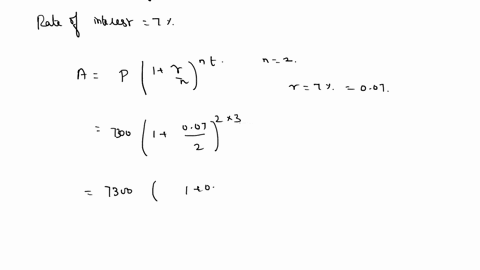 Rate of interest = 7 %.
A = P ( 1 + r/n )^nt n = 2.
r = 7 % = 0.07.
= 7300 ( 1 + 0.07/2 )^2×3
= 7300 ( 1 + 0.